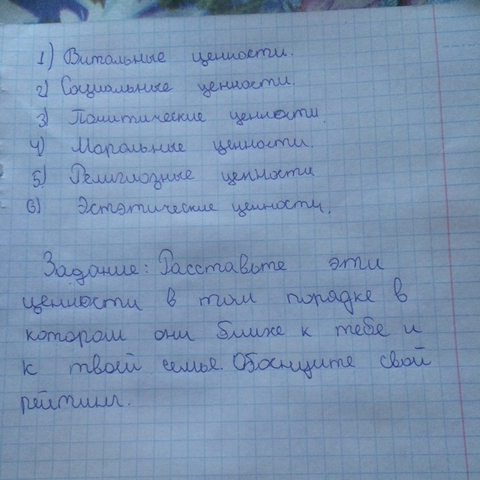 1) Витальные ценности.
2) Социальные ценности.
3) Политические ценности.
4) Моральные ценности.
5) Религиозные ценности
6) Эстэтические ценности.
Задание: Расставьте эти
ценности в том порядке в
котором они ближе к тебе и
к твоей семье. Обоснуйте свой
рейтинг.